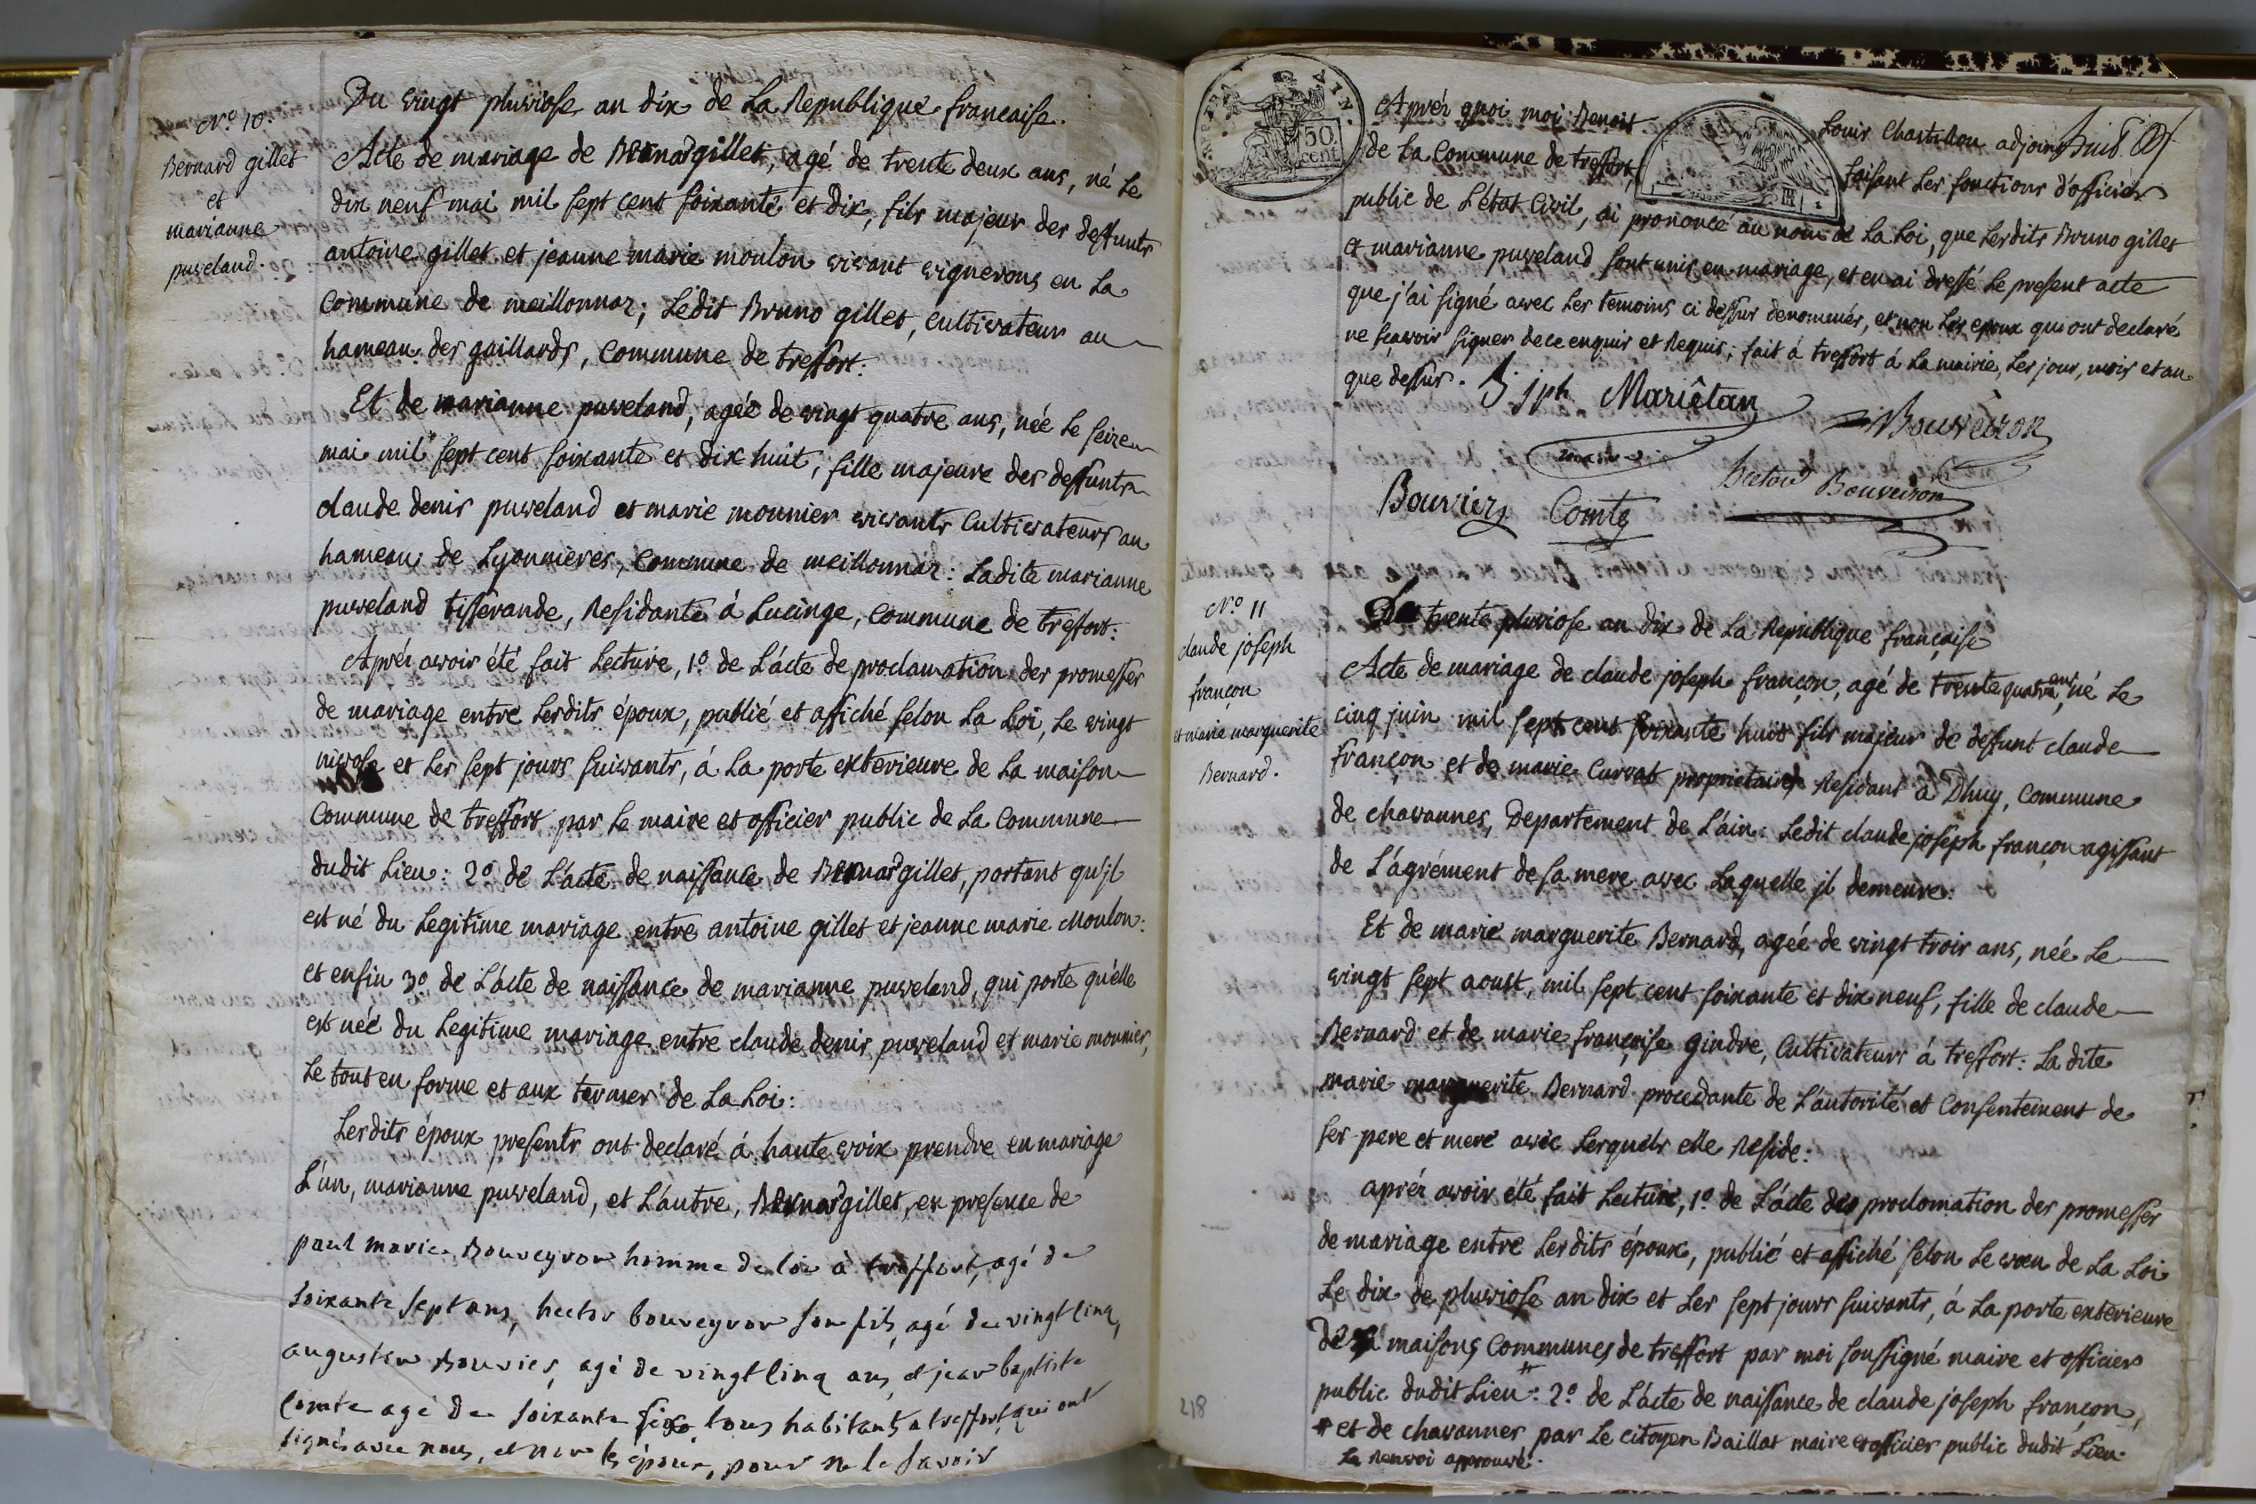 N.º 10.
Bernard gillet
et
marianne
puveland.
Du vingt pluviose an dix de La Republique francaise.
Acte de mariage de Bernard gillet, agé de trente deux ans, né Le
dix neuf mai mil sept cent soixante et dix, fils majeur des deffunts
antoine gillet et jeanne marie moulon vivant vignerons en La
Commune de meillonnaz; Ledit Bruno gillet, Cultivateur au
hameau des gaillards, Commune de treffort.
Et de marianne puveland, agée de vingt quatre ans, née Le seize
mai mil sept cent soixante et dix huit, fille majeure des deffunts
claude denis puveland et marie mounier vivants Cultivateurs au
hameau de Lyonnieres, Commune de meillonnáz: Ladite marianne
puveland tisserande, Residante á Lucinge, Commune de treffort.
Aprés avoir été fait Lecture, 1º de L'acte de proclamation des promesses
de mariage entre Lesdits époux, publié et affiché selon La Loi, Le vingt
nivose et Les sept jours suivants, á La porte exterieure de La maison
Commune de treffort par Le maire et officier public de La Commune
dudit Lieu: 2º de L'acte de naissance de Bernard gillet, portant qu'jl
est né du Legitime mariage entre antoine gillet et jeanne marie Moulon:
et enfin 3º de L'acte de naissance de marianne puveland, qui porte qu'elle
est née du Legitime mariage entre claude denis puveland et marie mounier,
Le tout en forme et aux termes de La Loi:
Lesdits époux presents ont declaré á haute voix prendre en mariage
L'un, marianne puveland, et L'autre, Bernard gillet, en presence de
paul marie Bouveyron homme de loi à treffort, agé de
soixante sept ans, hector bouveyron son fils, agé de vingt cinq,
augustin Bouvier, agé de vingt cinq ans, et jean baptiste
Comte agé de soixante six tous habitants a treffort, qui ont
signés avec nous, et non les époux, pour ne le savoir
Aprés quoi moi Benoit Louis Chastillon adjoint
de La Commune de treffort, faisant Les fonctions d'officier
public de L'état Civil, ai prononcé au nom de La Loi, que Lesdits Bruno gillet
et marianne puveland sont unis en mariage, et en ai dressé Le present acte
que j'ai signé avec Les temoins ci dessus denommés, et non Les epoux qui ont declaré
ne sçavoir signer de ce enquis et Requis; fait á treffort á La mairie, Les jour, mois et an
que dessus. jph Mariêtan
Bouveiron
hector Bouveiron
Bouvier Comte
50
cent
N.º 11
claude joseph
françon
et marie marguerite
Bernard.
Du trente pluviose an dix de La Republique française
Acte de mariage de claude joseph françon, agé de trente quatre ans, né Le
cinq juin mil sept cent soixante huit fils majeur de defunt claude
françon et de marie Curvat proprietaires Residant a Dhuy, Commune
de chavannes, Departement de L'ain: Ledit claude joseph françon agissant
de L'agrément de sa mere avec Laquelle jl demeure:
Et de marie marguerite Bernard, agée de vingt trois ans, née Le
vingt sept aoust, mil sept cent soixante et dix neuf, fille de claude
Bernard et de marie françoise Gindre, Cultivateurs á treffort: La dite
marie marguerite Bernard procedante de L'autorité et Consentement de
ses pere et mere avec Lesquels elle Reside:
aprés avoir été fait Lecture, 1º de L'acte de proclomation des promesses
de mariage entre Lesdits époux, publié et affiché selon Le vœu de La Loi
Le dix de pluviose an dix et Les sept jours suivants, á La porte exterieure
des maisons Communes de treffort par moi soussigné maire et officier
public dudit Lieu #: 2º de L'acte de naissance de claude joseph françon,
# et de chavannes par Le citoyen Baillat maire et officier public dudit Lieu.
Le Renvoi approuvé.
218